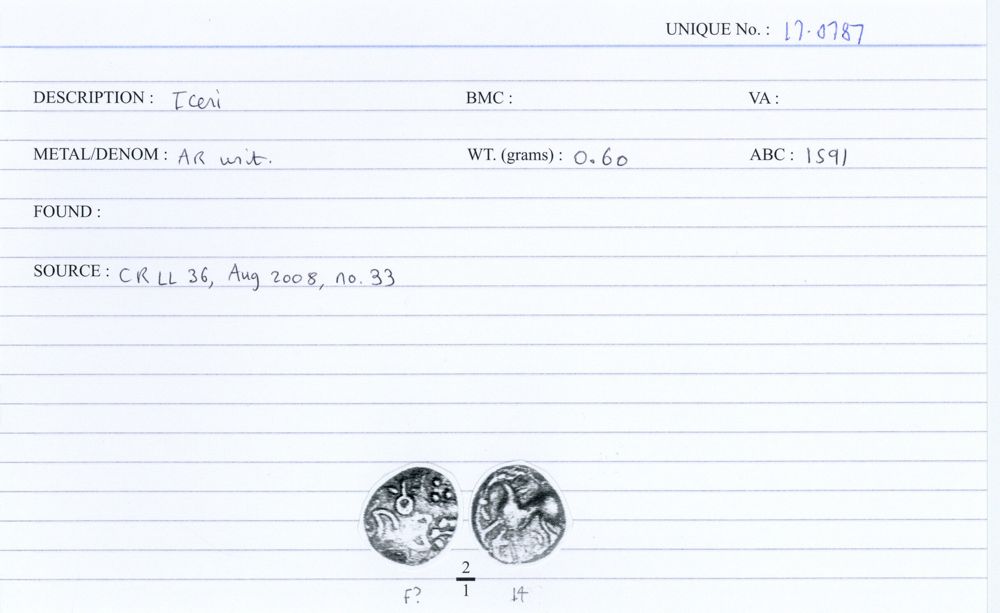 UNIQUE No. : 17.0787
DESCRIPTION : Iceni BMC : VA :
METAL/DENOM : AR unit. WT. (grams) : 0.60 ABC : 1591
FOUND :
SOURCE : CR LL 36, Aug 2008, no. 33
2
F? 1 14